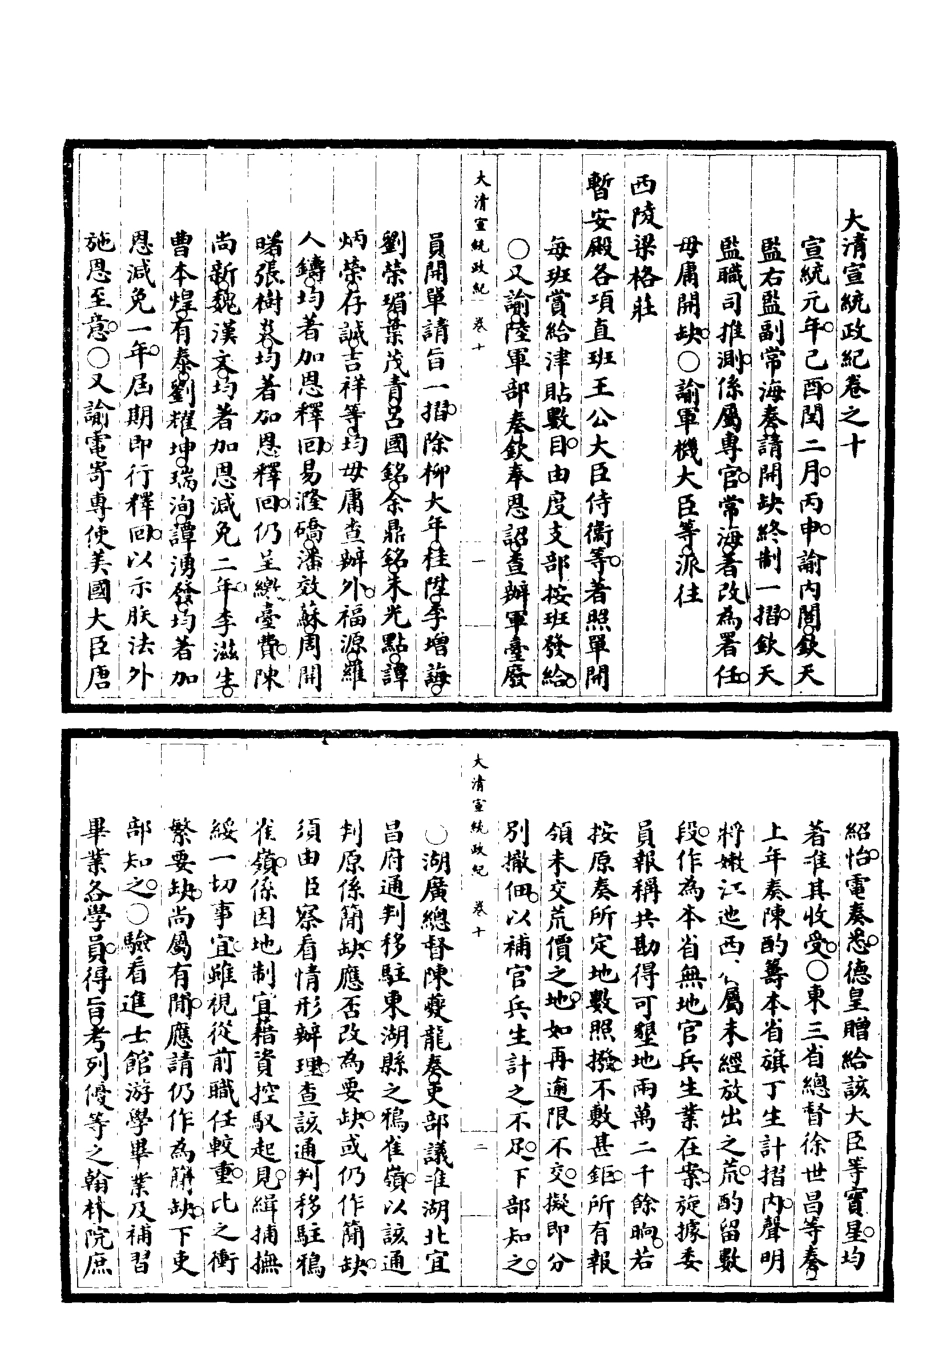 大清宣統政紀卷之十
宣統元年己酉閏二月丙申諭內閣欽天
監右監副常海奏請開缺終制一摺欽天
監職司推測係屬專官常海著改為署任
毋庸開缺○諭軍機大臣等派往
西陵梁格莊
暫安殿各項直班王公大臣侍衛等著照單開
每班賞給津貼數目由度支部按班發給
○又諭陸軍部奏欽奉恩詔查辦軍臺廢
大清宣統政紀 卷十 一
員開單請旨一摺除柳大年桂陞李增誨
劉榮瑂葉茂青呂國銘余鼎銘朱光點譚
炳榮存誠吉祥等均毋庸查辦外福源羅
人鑄均著加恩釋回易隆礄潘效蘇周開
曙張樹棻均著加恩釋回仍呈繳臺費陳
尚新魏漢文均著加恩減免二年李滋生
曹本煌有泰劉耀坤瑞洵譚湧發均著加
恩減免一年屆期即行釋回以示朕法外
施恩至意○又諭電寄專使美國大臣唐
紹怡電奏悉德皇贈給該大臣等寶星均
著准其收受○東三省總督徐世昌等奏
上年奏陳酌籌本省旗丁生計摺內聲明
將嫩江迤西 屬未經放出之荒酌留數
段作為本省無地官兵生業在案旋據委
員報稱共勘得可墾地兩萬二千餘晌若
按原奏所定地數照撥不敷甚鉅所有報
領未交荒價之地如再逾限不交擬即分
別撤佃以補官兵生計之不足下部知之
大清宣統政紀 卷十 二
○湖廣總督陳夔龍奏吏部議准湖北宜
昌府通判移駐東湖縣之鴉雀嶺以該通
判原係簡缺應否改為要缺或仍作簡缺
須由臣察看情形辦理查該通判移駐鴉
雀嶺係因地制宜藉資控馭起見緝捕撫
綏一切事宜雖視從前職任較重比之衝
繁要缺尚屬有閒應請仍作為簡缺下吏
部知之○驗看進士館游學畢業及補習
畢業各學員得旨考列優等之翰林院庶